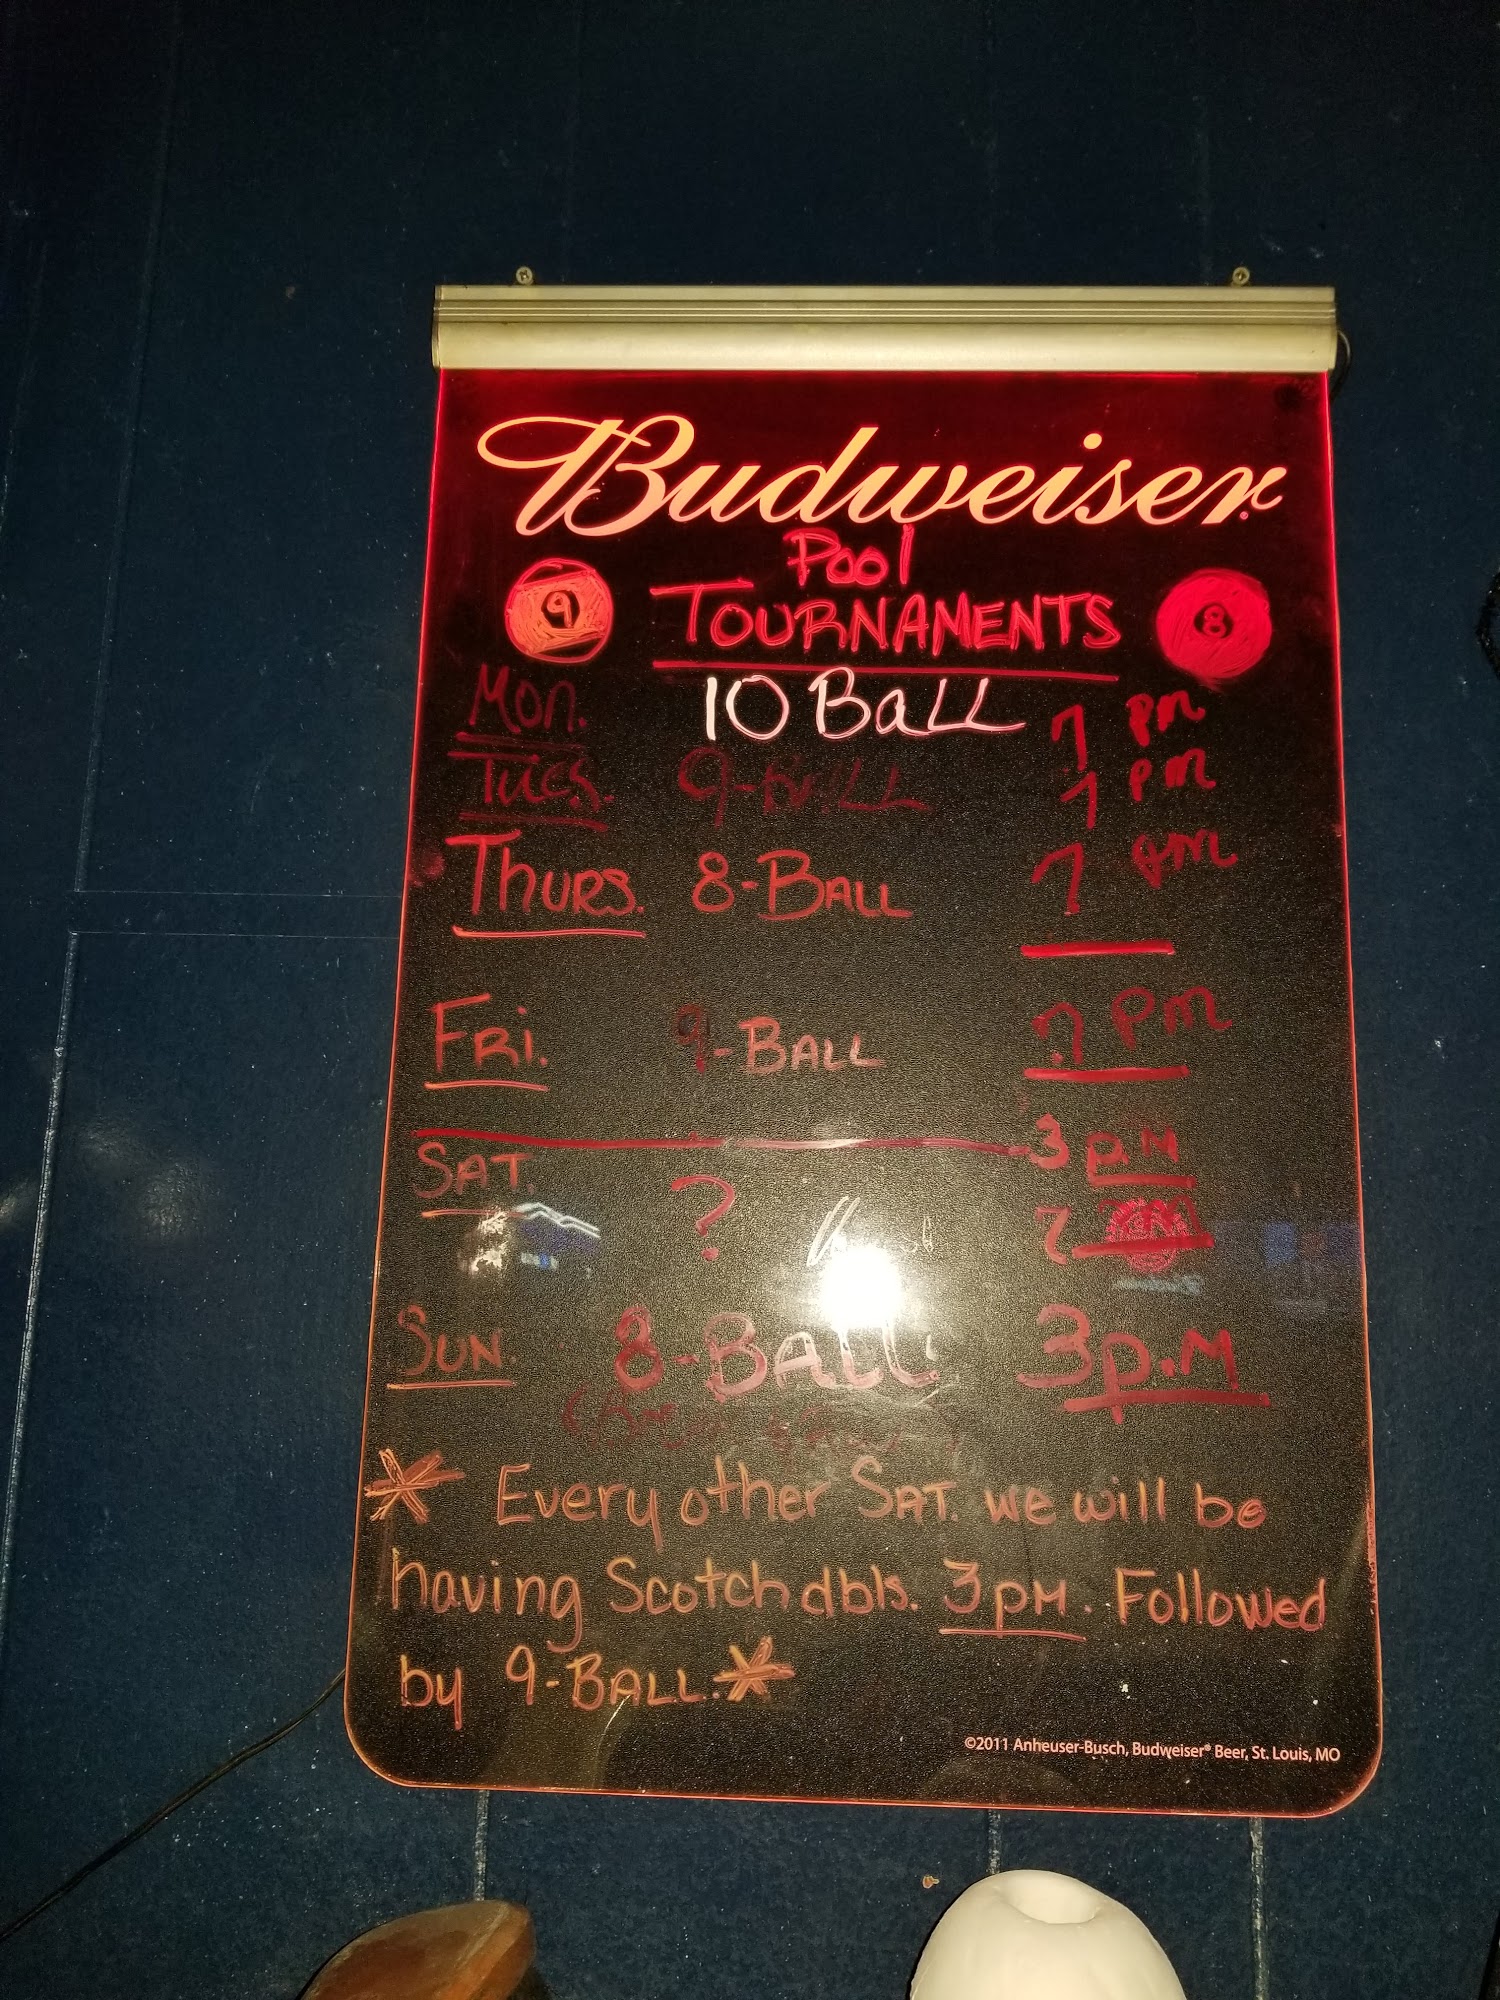 Budweiser
Pool
9 TOURNAMENTS 8
Mon. 10 BALL 7 pm
Tues. 9-BALL 7 pm
THURS. 8-BALL 7 pm
FRI. 9-BALL 7 pm
SAT. ? 3 pm
7
SUN. 8-BALL 3p.M
* Every other SAT. we will be
having Scotch dbls. 3pm. Followed
by 9-BALL.*
©2011 Anheuser-Busch, Budweiser® Beer, St. Louis, MO